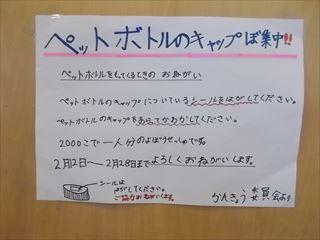 ペットボトルのキャップぼ集中!!
ペットボトルをもてくるときの おねがい
ペットボトルのキャップについているシールをはがしてください。
ペットボトルのキャップをあらってかわかしてください。
2000こで一人分のよぼうせっしゅです。
2月12日〜2月28日までよろしくおねがいします。
シールは
はがしてください。
ごきょう力おねがいします。
かんきょう委員会より